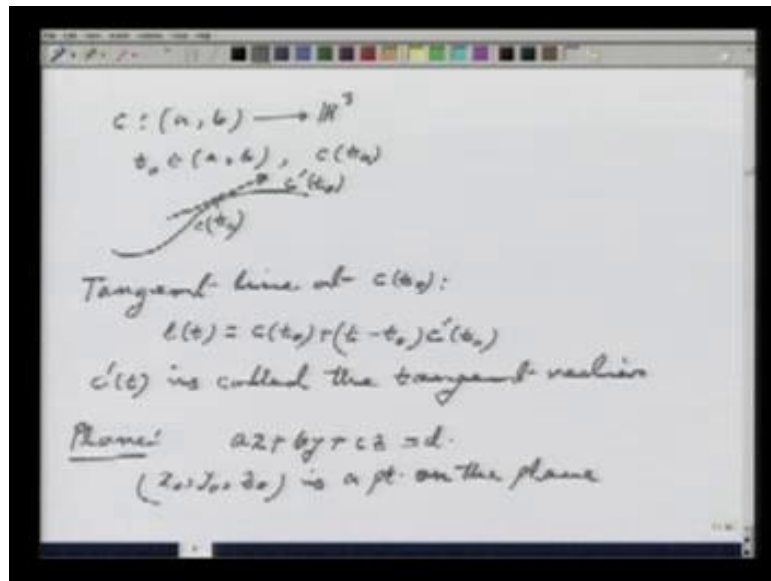 c : (a, b) ⟶ ℝ³
t₀ ∈ (a, b), c(t₀)
c'(t₀)
c(t₀)
Tangent line at c(t₀):
l(t) = c(t₀) + (t - t₀) c'(t₀)
c'(t) is called the tangent vector
Plane: ax + by + cz = d.
(x₀, y₀, z₀) is a pt. on the plane